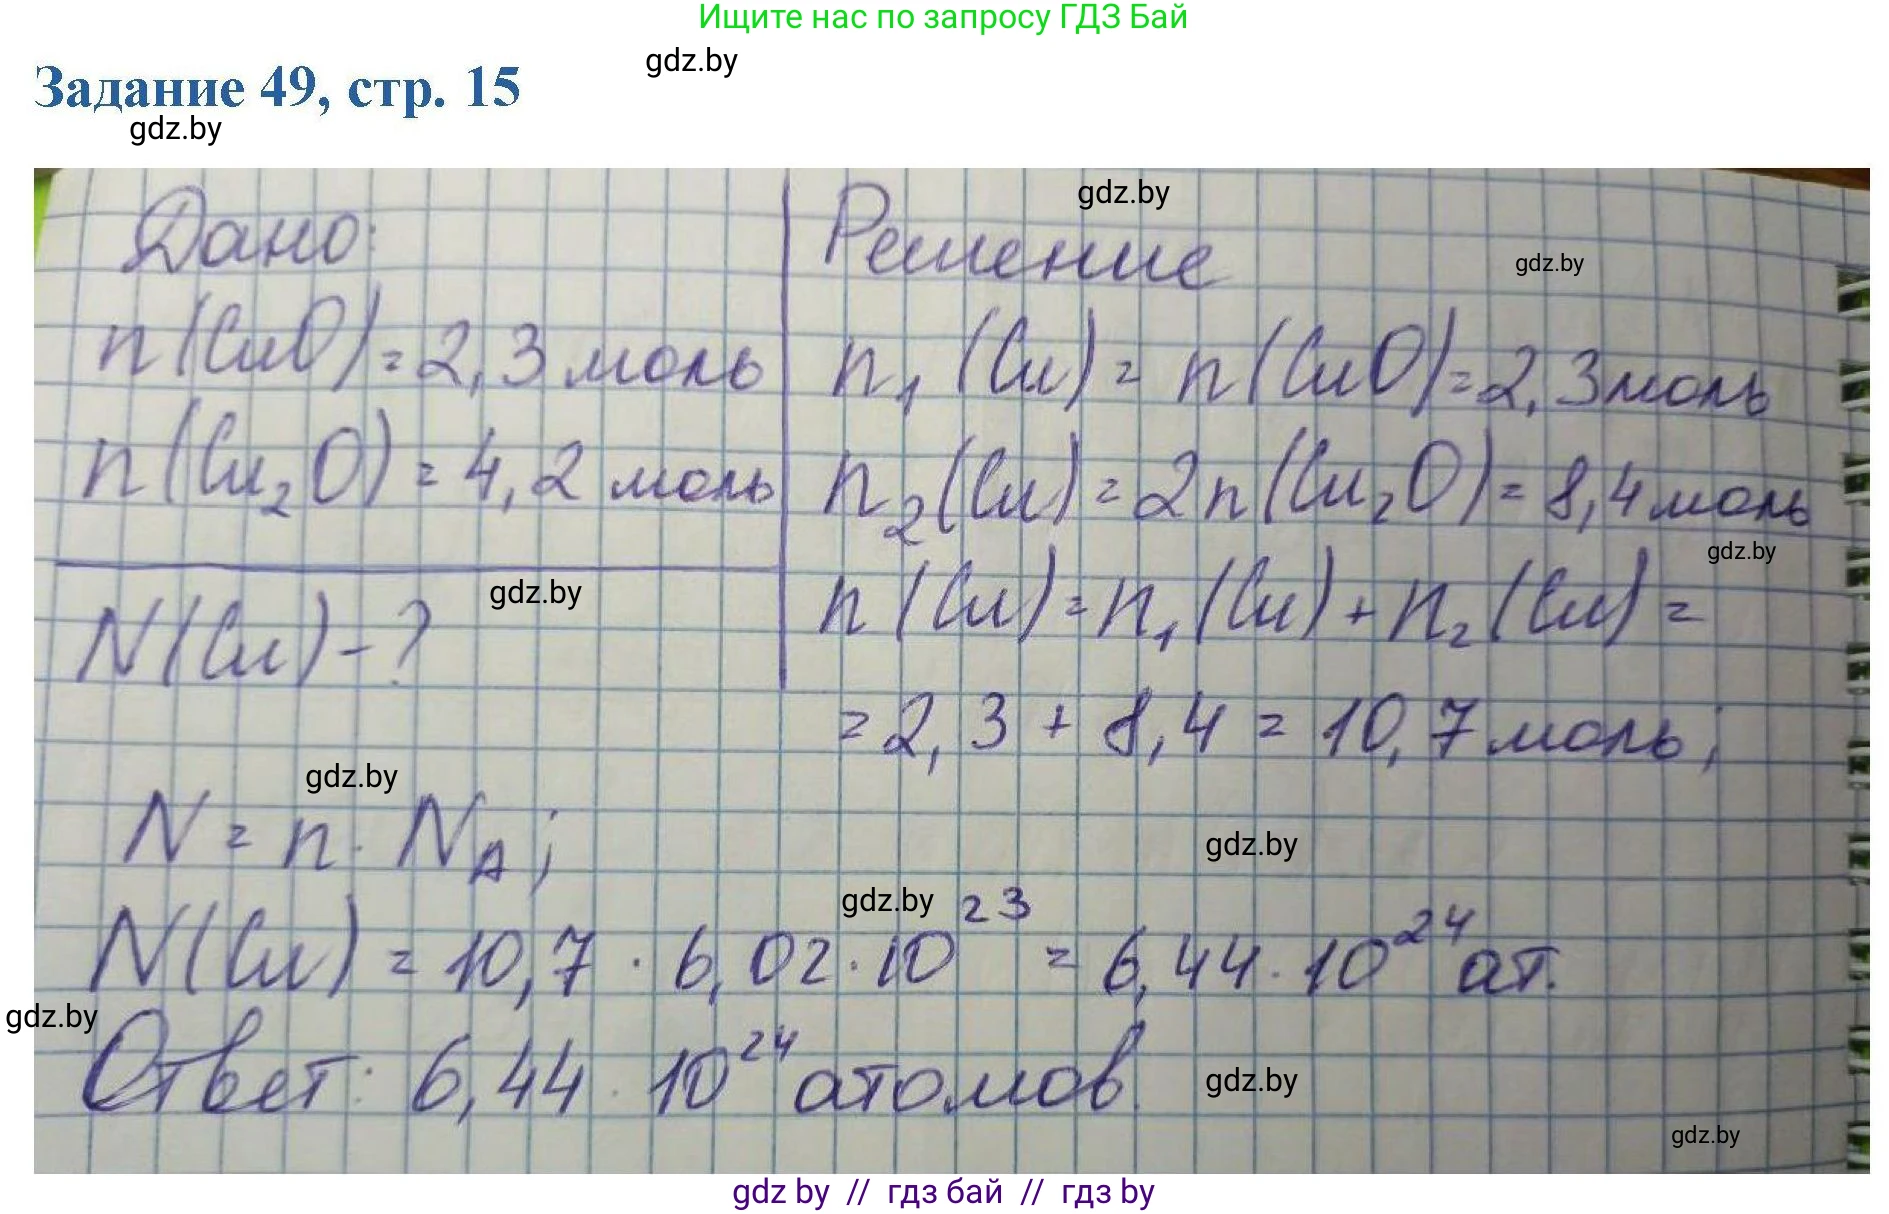 Ищите нас по запросу ГДЗ Бай
gdz.by
Задание 49, стр. 15
gdz.by
gdz.by
Дано:
Решение
gdz.by
n(CuO)=2,3 моль
n₁(Cu)=n(CuO)=2,3 моль
n(Cu₂O)=4,2 моль
n₂(Cu)=2n(Cu₂O)=8,4 моль
gdz.by
gdz.by
N(Cu)-?
n(Cu)=n₁(Cu)+n₂(Cu)=
=2,3+8,4=10,7 моль;
gdz.by
N=n·N_A;
gdz.by
gdz.by
N(Cu)=10,7·6,02·10²³=6,44·10²⁴ ат.
gdz.by
Ответ: 6,44·10²⁴ атомов.
gdz.by
gdz.by
gdz by // гдз бай // гдз by